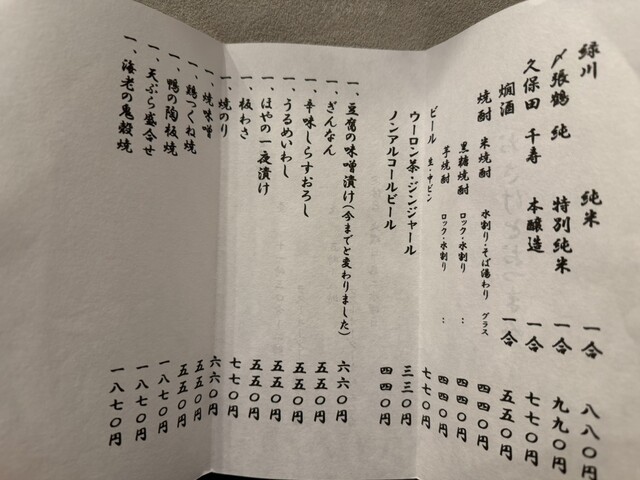 緑川 純米 一合 八八〇円
〆張鶴 純 特別純米 一合 九九〇円
久保田 千寿 本醸造 一合 七七〇円
燗酒 一合 五五〇円
焼酎 米焼酎 水割り・そば湯わり グラス 四四〇円
黒糖焼酎 ロック・水割り : 四四〇円
芋焼酎 ロック・水割り : 四四〇円
ビール 生・中ビン 七七〇円
ウーロン茶・ジンジャール 三三〇円
ノンアルコールビール 四四〇円
一、豆腐の味噌漬け(今までと変わりました) 六六〇円
一、ぎんなん 五五〇円
一、辛味しらすおろし 五五〇円
一、うるめいわし 五五〇円
一、ほやの一夜漬け 五五〇円
一、板わさ 七七〇円
一、焼のり 六六〇円
一、焼味噌 五五〇円
一、鶏つくね焼 五五〇円
一、鴨の陶板焼 一八七〇円
一、天ぷら盛合せ 一八七〇円
一、海老の鬼殻焼 一八七〇円